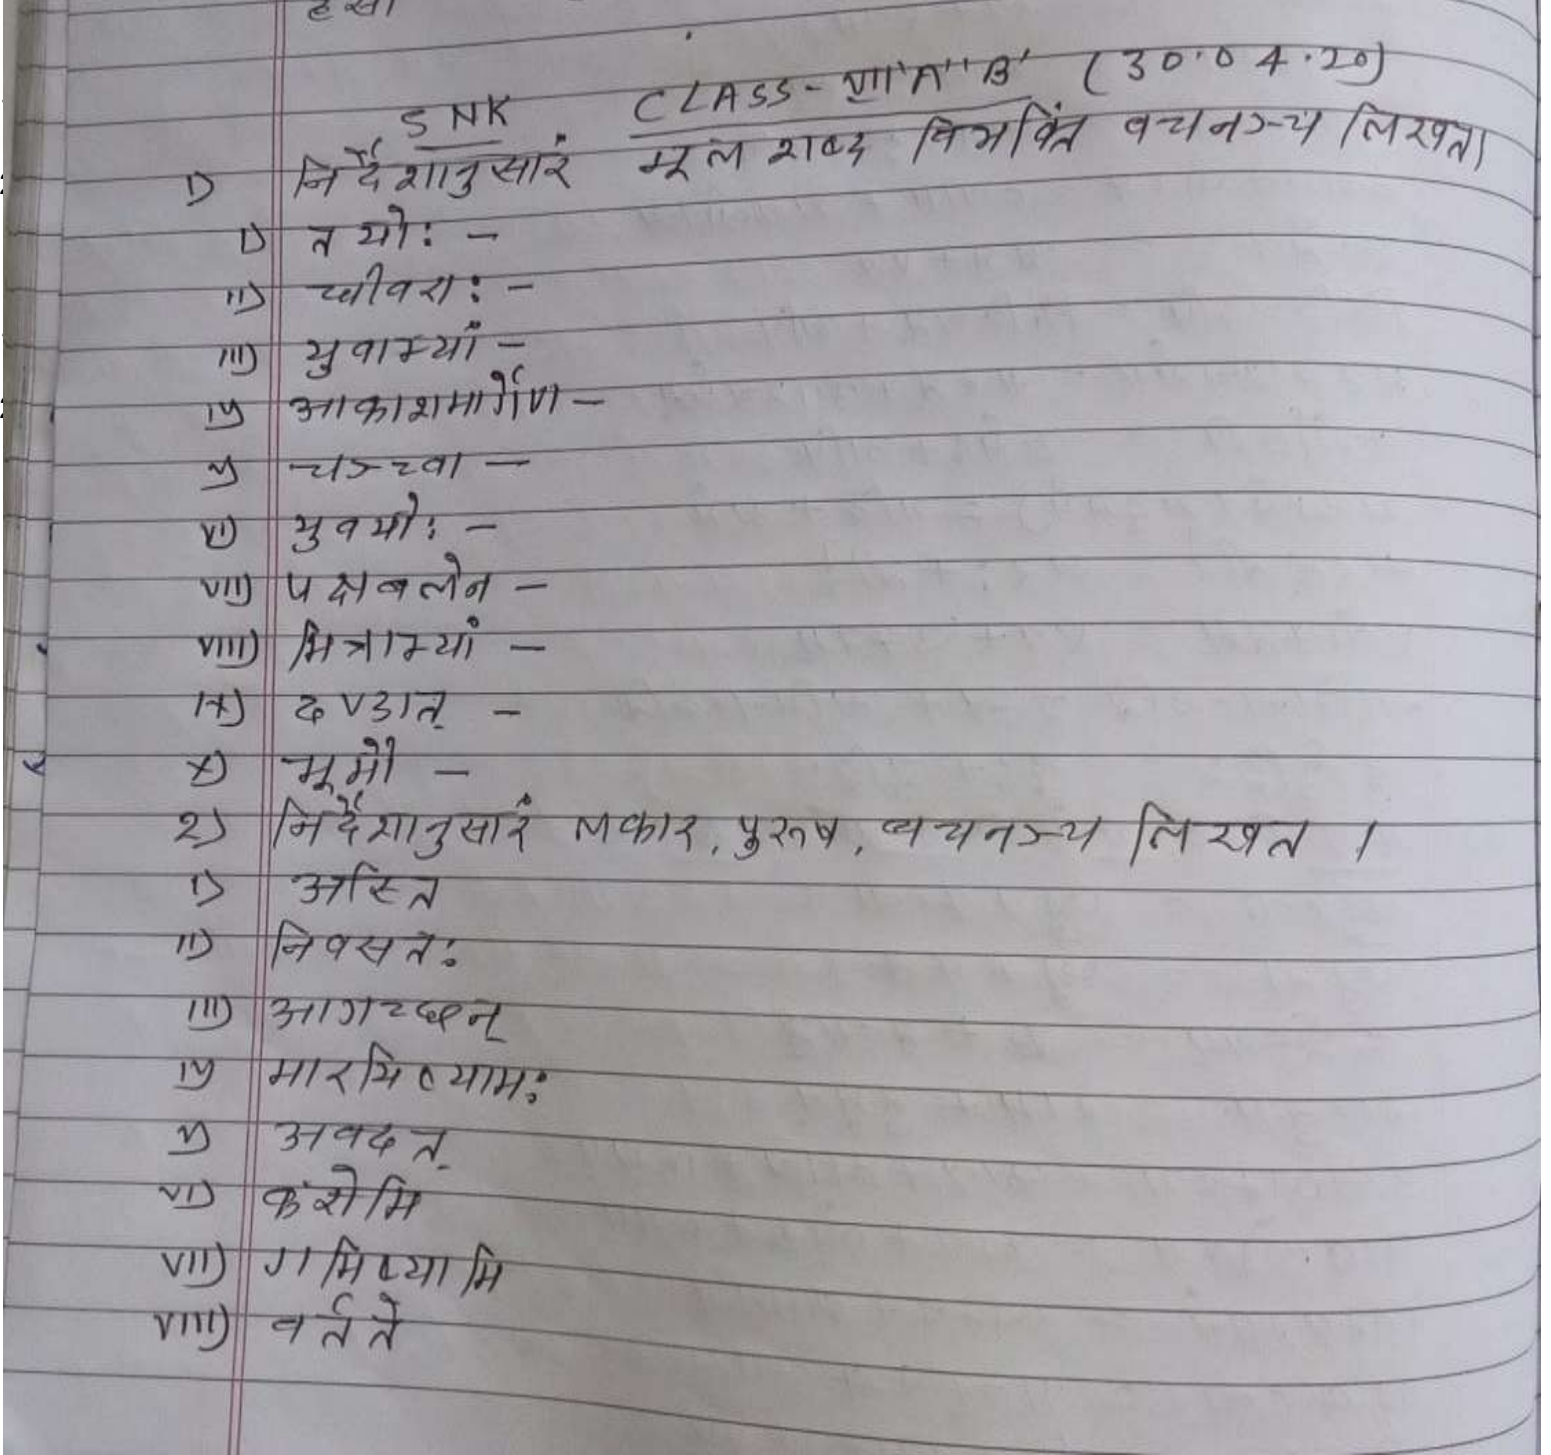 SNK CLASS- VII 'A' 'B' (30.04.20)
1) निर्देशानुसारं मूल शब्द विभक्तिं वचनञ्च लिखत।
i) तयोः -
ii) धीवराः -
iii) युवाभ्यां -
iv) आकाशमार्गेण -
v) चञ्च्वा -
vi) युवयोः -
vii) पक्षबलेन -
viii) मित्राभ्यां -
ix) दण्डात् -
x) भूमौ -
२) निर्देशानुसारं लकार, पुरूष, वचनञ्च लिखत ।
i) अस्ति
ii) निवसतः
iii) आगच्छन्
iv) मारयिष्यामः
v) अवदत्
vi) करोमि
vii) गमिष्यामि
viii) वर्तते